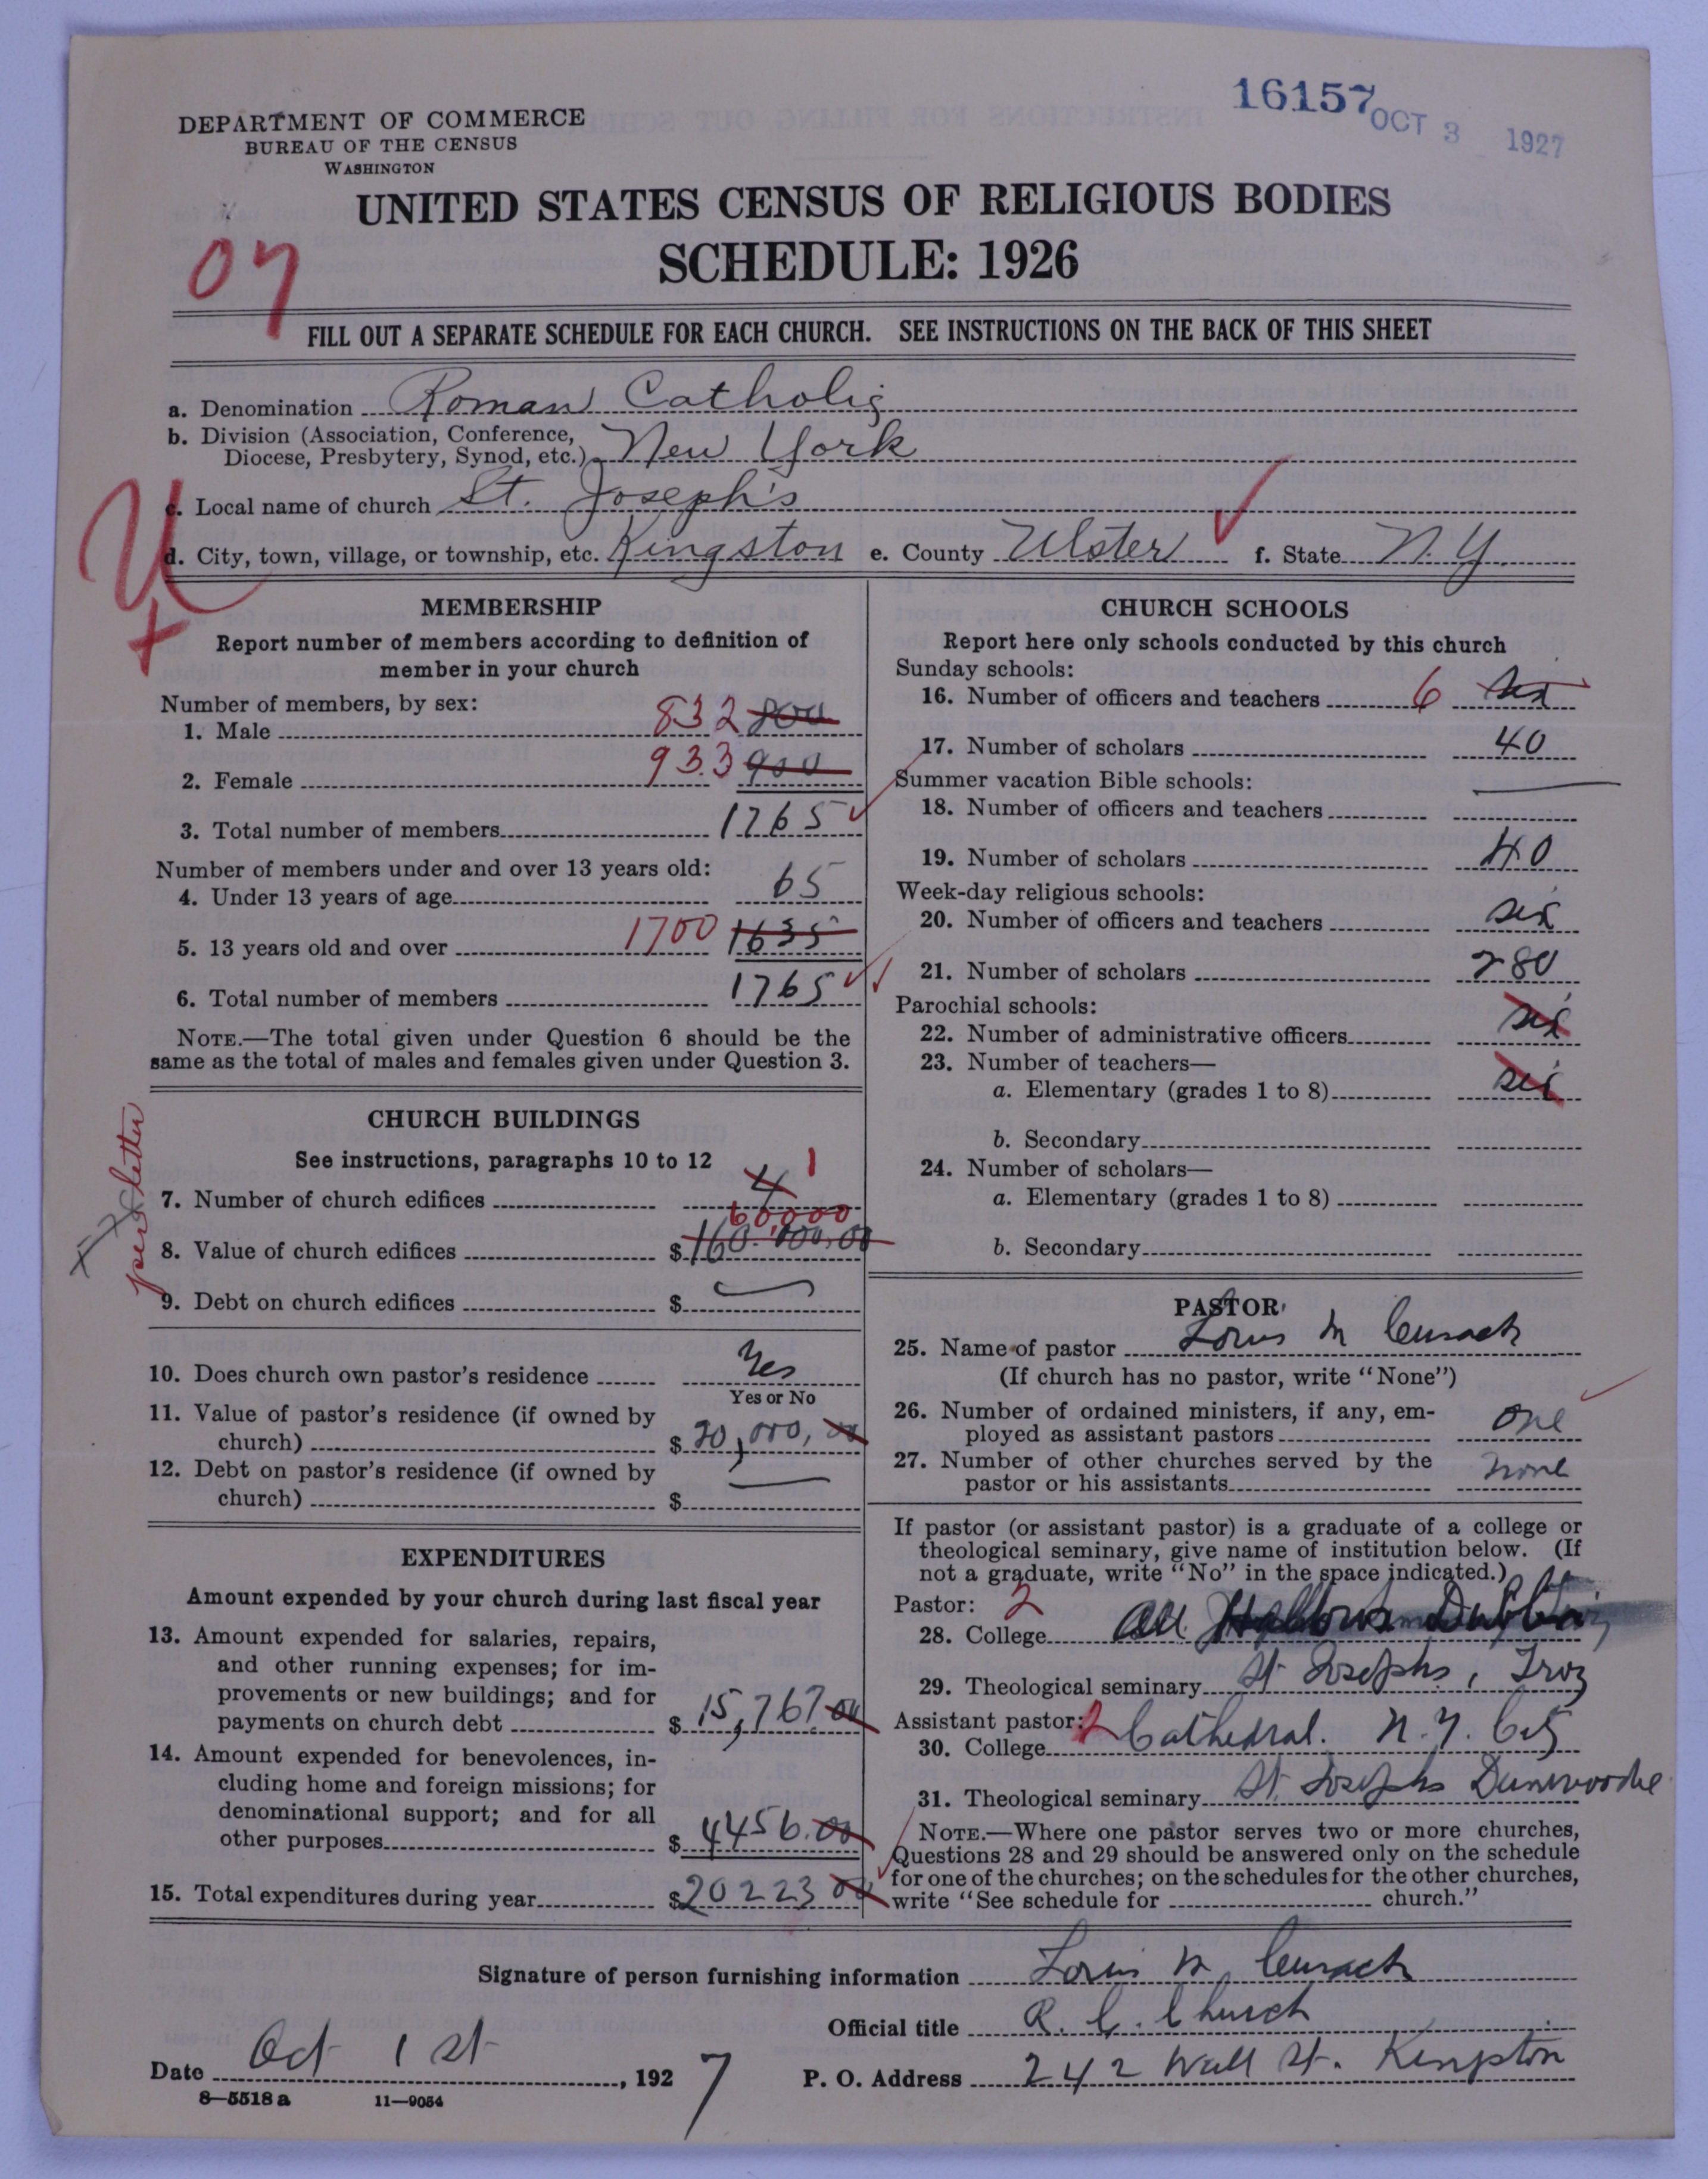 16157 OCT 3 1927
DEPARTMENT OF COMMERCE
BUREAU OF THE CENSUS
WASHINGTON
UNITED STATES CENSUS OF RELIGIOUS BODIES
SCHEDULE: 1926
07
FILL OUT A SEPARATE SCHEDULE FOR EACH CHURCH. SEE INSTRUCTIONS ON THE BACK OF THIS SHEET
a. Denomination Roman Catholic
b. Division (Association, Conference,
Diocese, Presbytery, Synod, etc.) New York
c. Local name of church St. Joseph's
d. City, town, village, or township, etc. Kingston e. County Ulster f. State N. Y.
U
+
MEMBERSHIP
Report number of members according to definition of
member in your church
Number of members, by sex:
1. Male 832 800
2. Female 933 900
3. Total number of members 1765
Number of members under and over 13 years old:
4. Under 13 years of age 65
5. 13 years old and over 1700 1635
6. Total number of members 1765
NOTE.—The total given under Question 6 should be the
same as the total of males and females given under Question 3.
CHURCH BUILDINGS
See instructions, paragraphs 10 to 12
7. Number of church edifices 4 1
60,000
8. Value of church edifices $160.000,00
9. Debt on church edifices $
per letter
10. Does church own pastor's residence Yes
Yes or No
11. Value of pastor's residence (if owned by
church) $20,000,00
12. Debt on pastor's residence (if owned by
church) $
EXPENDITURES
Amount expended by your church during last fiscal year
13. Amount expended for salaries, repairs,
and other running expenses; for im-
provements or new buildings; and for
payments on church debt $15,767.00
14. Amount expended for benevolences, in-
cluding home and foreign missions; for
denominational support; and for all
other purposes $4456.00
15. Total expenditures during year $20223 00
CHURCH SCHOOLS
Report here only schools conducted by this church
Sunday schools:
16. Number of officers and teachers 6 six
17. Number of scholars 40
Summer vacation Bible schools:
18. Number of officers and teachers
19. Number of scholars 40
Week-day religious schools:
20. Number of officers and teachers six
21. Number of scholars 280
Parochial schools:
22. Number of administrative officers six
23. Number of teachers—
a. Elementary (grades 1 to 8) six
b. Secondary
24. Number of scholars—
a. Elementary (grades 1 to 8)
b. Secondary
PASTOR
25. Name of pastor Louis M Cusack
(If church has no pastor, write "None")
26. Number of ordained ministers, if any, em-
ployed as assistant pastors one
27. Number of other churches served by the
pastor or his assistants none
If pastor (or assistant pastor) is a graduate of a college or
theological seminary, give name of institution below. (If
not a graduate, write "No" in the space indicated.)
Pastor: 2
28. College All Hallows Dublin
29. Theological seminary St Josephs, Troy
Assistant pastor: 2
30. College Cathedral. N. Y. City
31. Theological seminary St. Josephs Dunwoodie
NOTE.—Where one pastor serves two or more churches,
Questions 28 and 29 should be answered only on the schedule
for one of the churches; on the schedules for the other churches,
write "See schedule for church."
Signature of person furnishing information Louis M Cusack
Official title R. C. Church
Date Oct 1st, 1927 P. O. Address 242 Wall St. Kingston
8—5518 a 11—9054